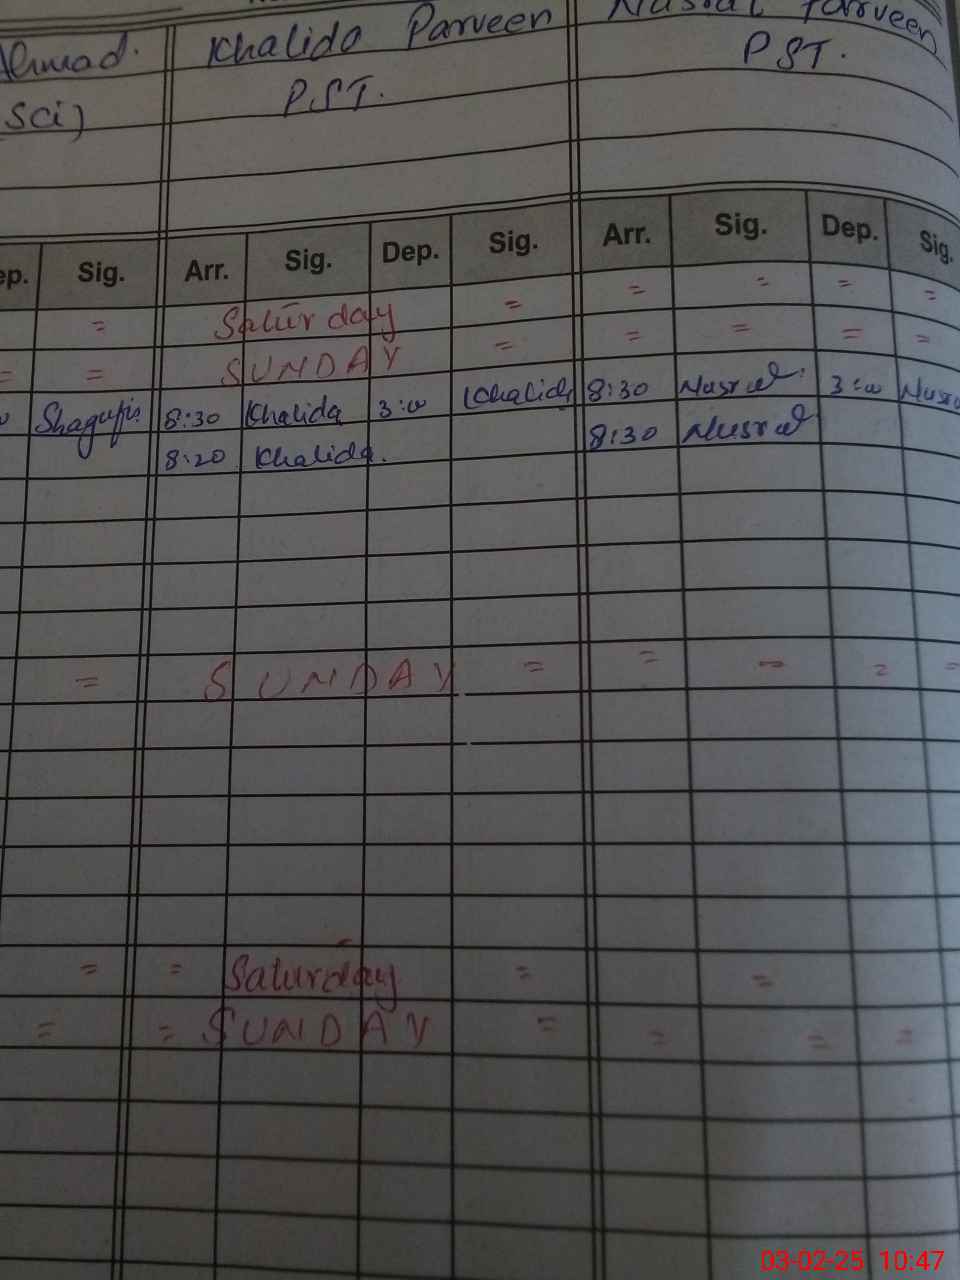 Ahmad. Khalida Parveen Nusrat Parveen
(Sci) P.ST. PST.
ep. Sig. Arr. Sig. Dep. Sig. Arr. Sig. Dep. Sig.
= Saturday = = = = =
= = SUNDAY = = = = =
Shagufta 8:30 Khalida 3:00 Khalida 8:30 Nusrat 3:00 Nusra
8:20 Khalida. 8:30 Nusrat
= SUNDAY = = = = =
= = Saturday = =
= = SUNDAY = = = =
03-02-25 10:47